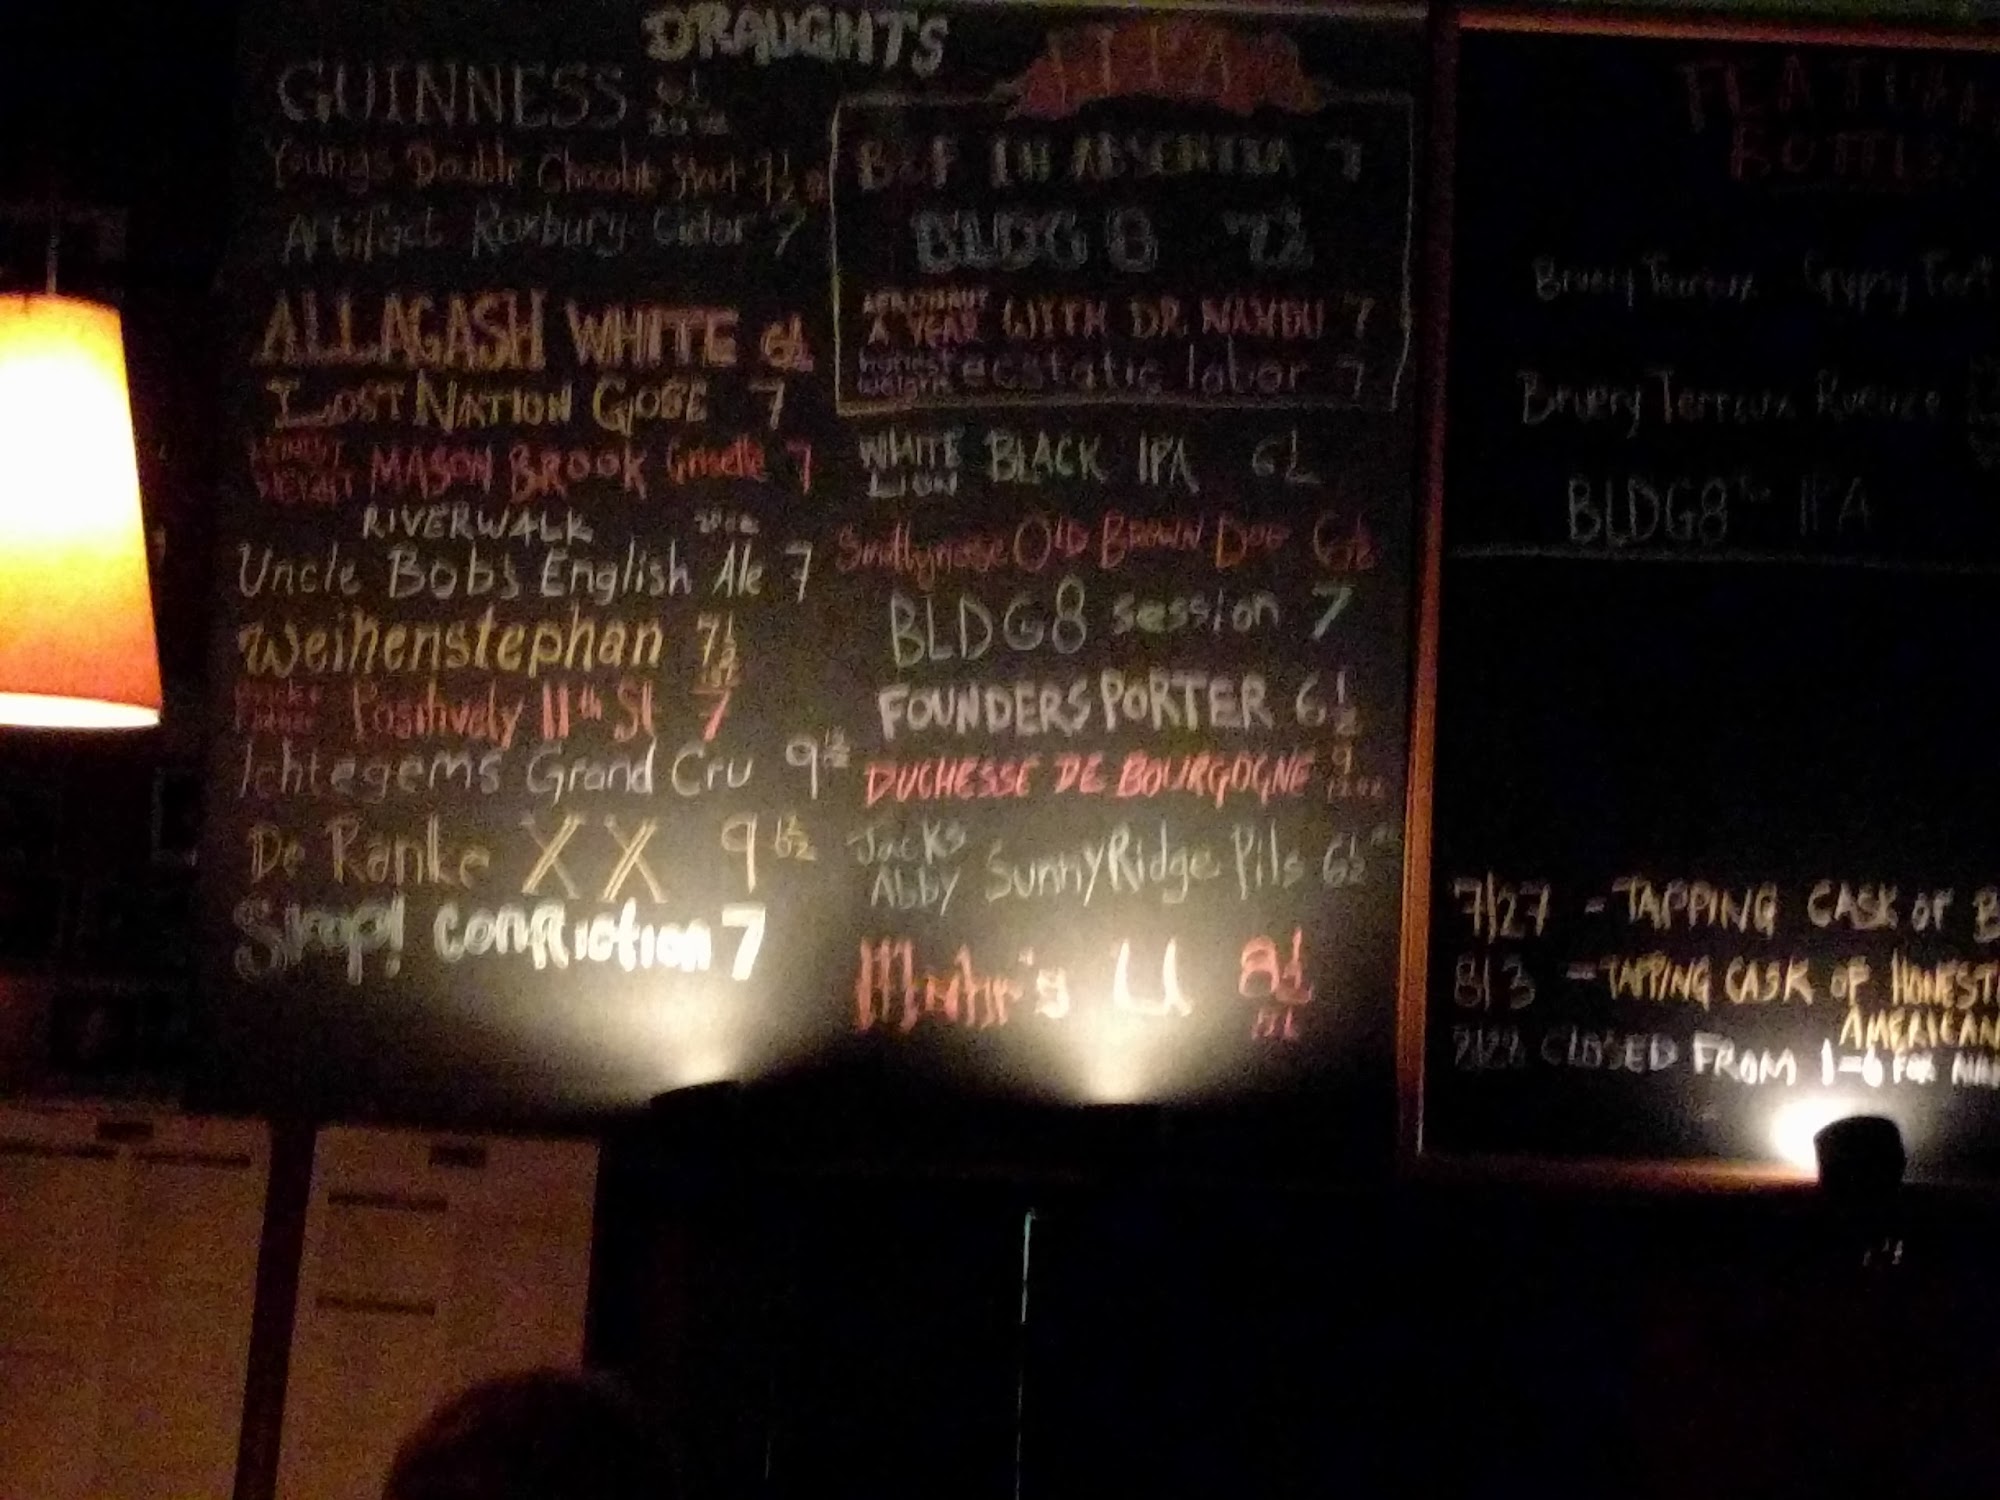 DRAUGHTS
GUINNESS 6½
20oz
Youngs Double Chocolate Stout 7½
Artifact Roxbury Cider 7
ALLAGASH WHITE 6½
LOST NATION GOSE 7
MASON BROOK Grisette 7
RIVERWALK 20oz
Uncle Bob's English Ale 7
Weihenstephan 7½
Positively 11th St 7
Ichtegems Grand Cru 9 12oz
De Ranke XX 9
Simp! Confliction 7
IN ABSENTIA 7
BLDG 8 7½
A YEAR WITH DR. NANDU 7
honest weight ecstatic labor 7
WHITE LION BLACK IPA 6½
Smuttynose OLD BROWN DOG 6½
BLDG8 session 7
FOUNDERS PORTER 6½
DUCHESSE DE BOURGOGNE 9
Jacks Abby SunnyRidge Pils 6½
U 8½
BOTTLE
Bruery Terreux Gypsy Tart
Bruery Terreux Rueuze
BLDG8 IPA
7/27 - TAPPING CASK OF B
8/3 - TAPPING CASK OF HONEST
AMERICAN
CLOSED FROM 1-6 FOR